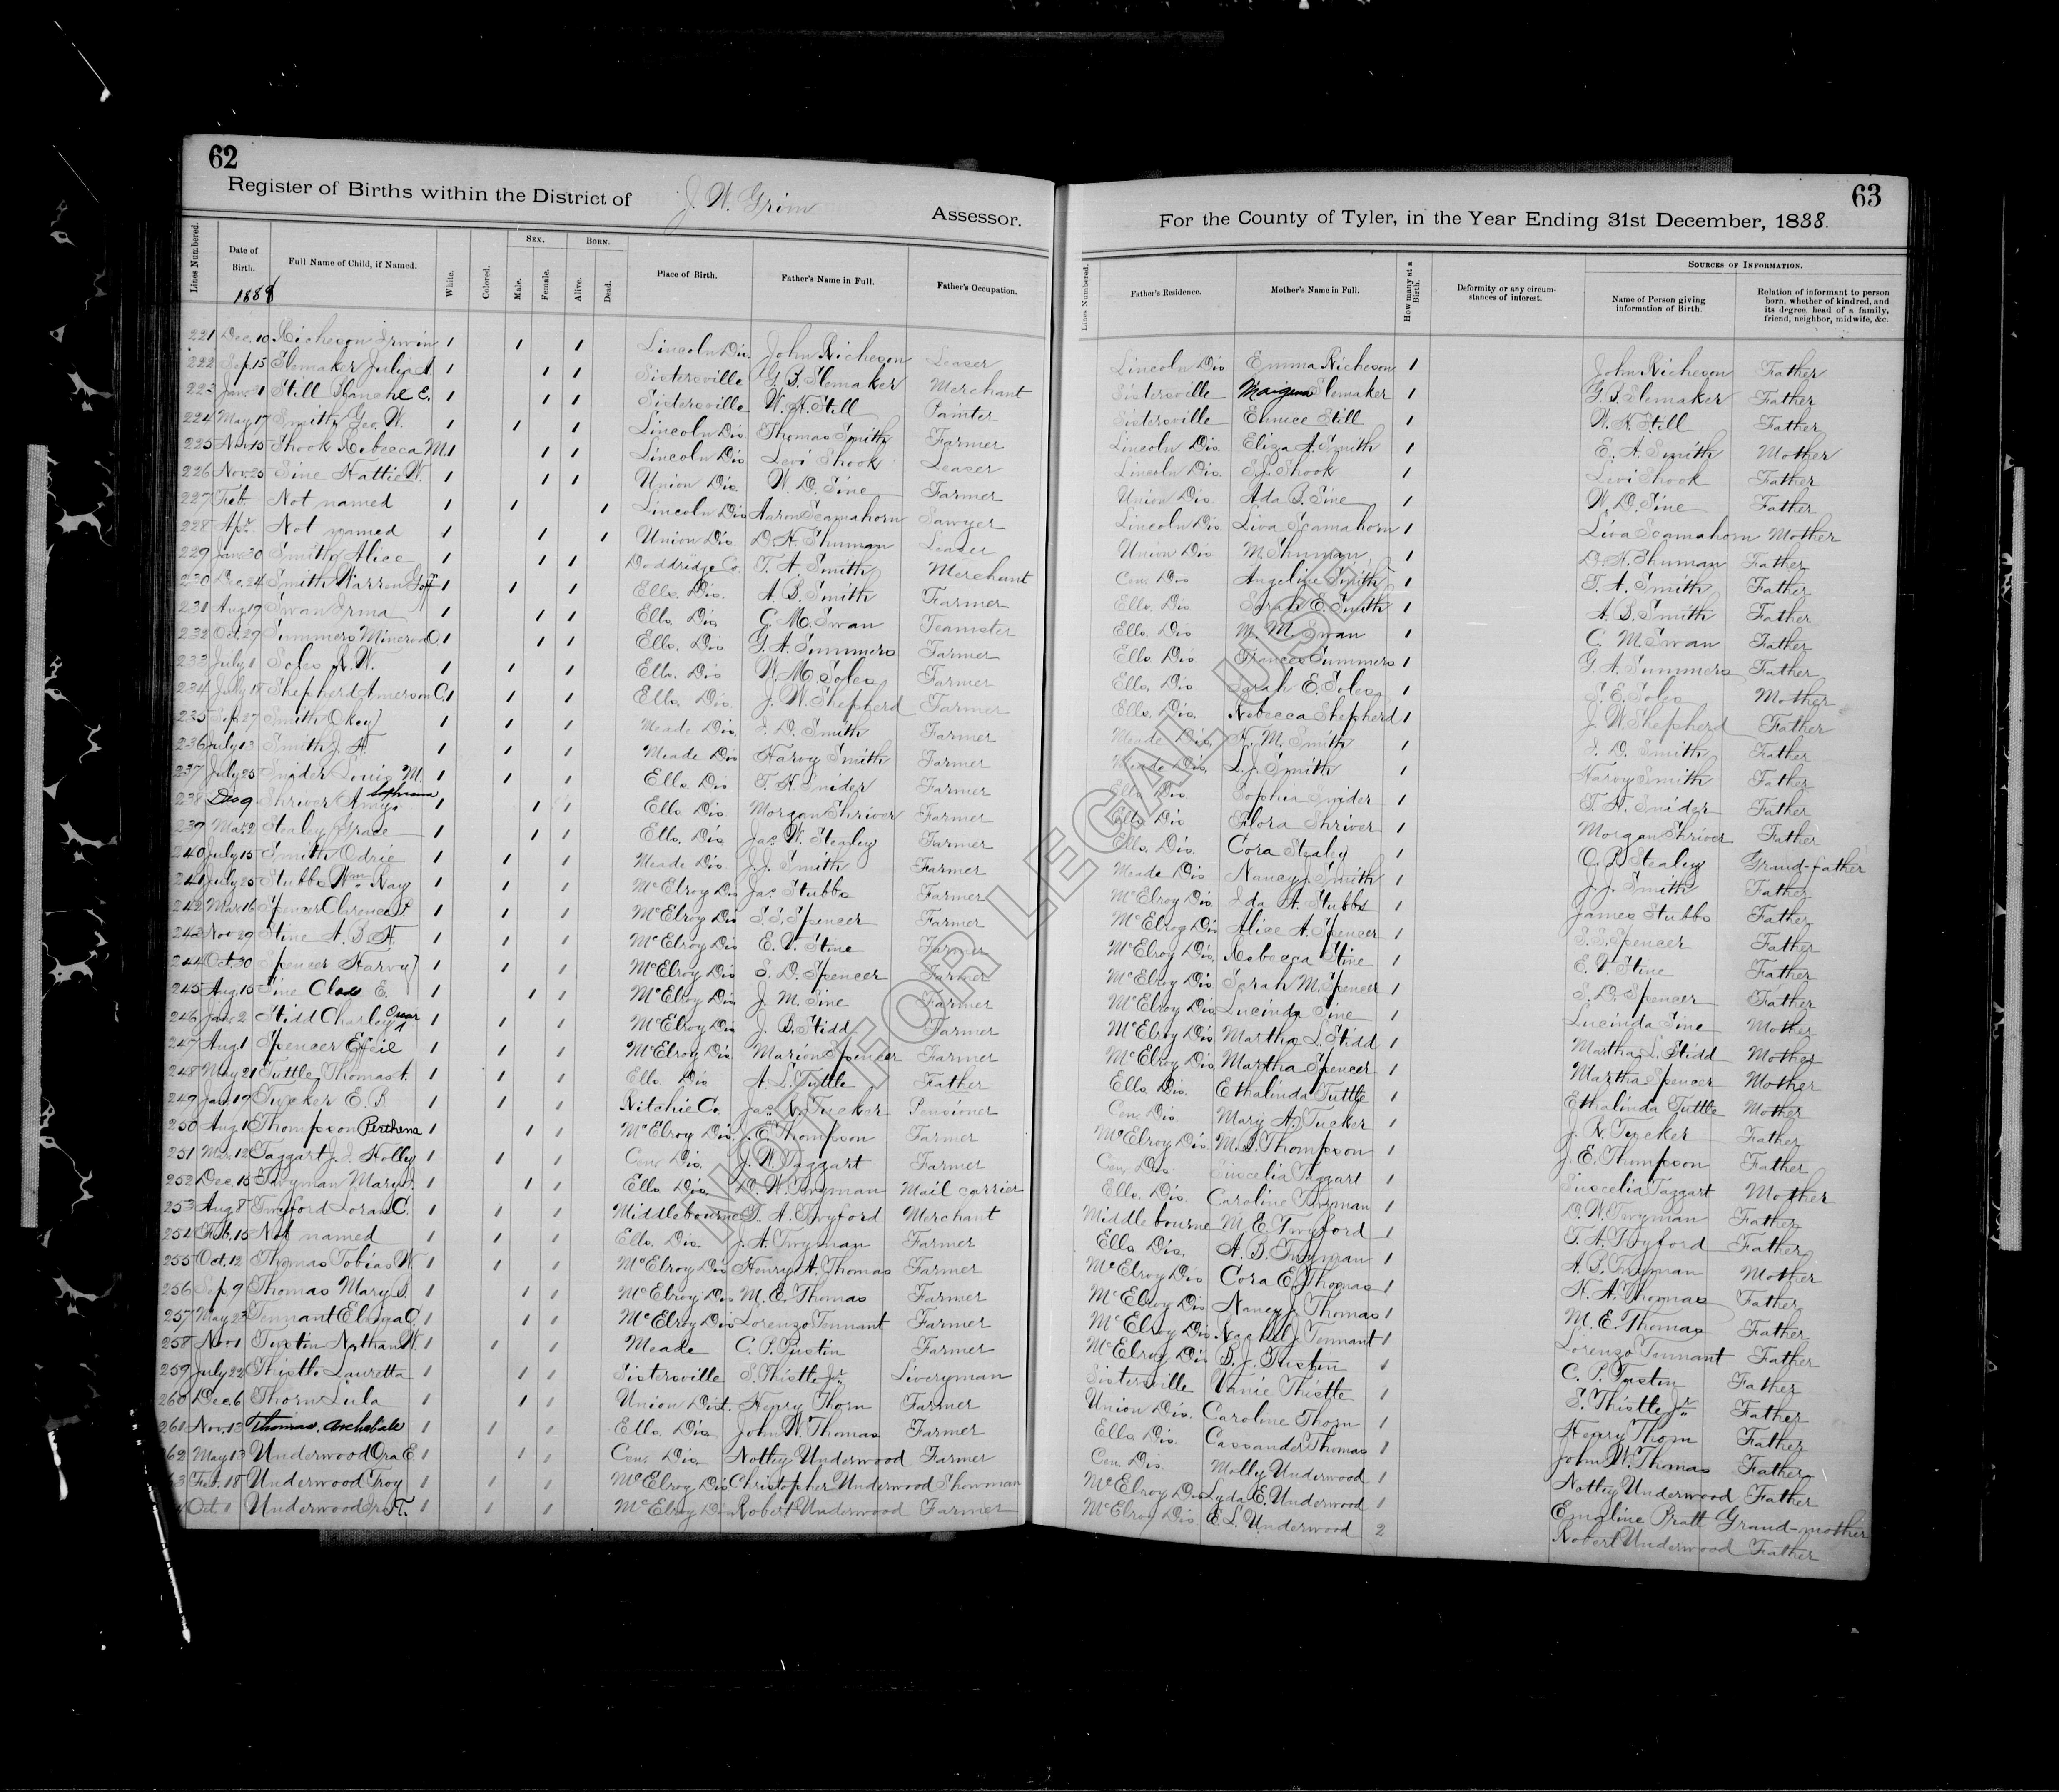 62
Register of Births within the District of J. W. Grim Assessor.
Lines Numbered.
Date of Birth.
1888
Full Name of Child, if Named.
White.
Colored.
Sex.
Male.
Female.
Born.
Alive.
Dead.
Place of Birth.
Father's Name in Full.
Father's Occupation.
221 Dec. 10 Richeson Irwin 1 1 1 Lincoln Dis. John Richeson Leaser
222 Sep. 15 Slemaker Julia A. 1 1 1 Sistersville G. B. Slemaker Merchant
223 Jan. 31 Still Blanche E. 1 1 1 Sistersville W. H. Still Painter
224 May 17 Smith Geo. W. 1 1 1 Lincoln Dis. Thomas Smith Farmer
225 Nov. 15 Shook Rebecca M. 1 1 1 Lincoln Dis Levi Shook Leaser
226 Nov. 25 Sine Hattie W. 1 1 1 Union Dis. W. D. Sine Farmer
227 Feb. Not named 1 1 1 Lincoln Dis Aaron Scamahorn Sawyer
228 Apr. Not named 1 1 1 Union Dis D. H. Shuman Leaser
229 Jan. 30 Smith Alice 1 1 1 Doddridge Co. T. A. Smith Merchant
230 Dec. 24 Smith Warren Goff 1 1 1 Ells. Dis. A. B. Smith Farmer
231 Aug 19 Swan Irma 1 1 1 Ells. Dis C. M. Swan Teamster
232 Oct. 29 Summers Minerva O. 1 1 1 Ells. Dis G. A. Summers Farmer
233 July 1 Soles R. W. 1 1 1 Ells. Dis W. M. Soles Farmer
234 July 18 Shepherd Amerson C. 1 1 1 Ells. Dis. J. W. Shepherd Farmer
235 Sep. 27 Smith Okey 1 1 1 Meade Dis. I. D. Smith Farmer
236 July 13 Smith J. H. 1 1 1 Meade Dis Harvy Smith Farmer
237 July 25 Snider Louis M. 1 1 1 Ells. Dis. T. H. Snider Farmer
238 Dec 9 Shriver Amy Sophrona 1 1 1 Ells. Dis. Morgan Shriver Farmer
239 Mar. 2 Stealey Grace 1 1 1 Ells. Dis Jas. W. Stealey Farmer
240 July 15 Smith Odrie 1 1 1 Meade Dis J. J. Smith Farmer
241 July 25 Stubbs Wm. Ray 1 1 1 McElroy Dis Jas. Stubbs Farmer
242 Mar 16 Spencer Clarence P. 1 1 1 McElroy Dis S. S. Spencer Farmer
243 Nov 29 Stine A. B. H. 1 1 1 McElroy Dis E. V. Stine Farmer
244 Oct. 30 Spencer Harvy 1 1 1 McElroy Dis S. D. Spencer Farmer
245 Aug. 15 Sine E. 1 1 1 McElroy Dis J. M. Sine Farmer
246 Jan. 2 Stidd Charley Oscar 1 1 1 McElroy Dis J. B. Stidd Farmer
247 Aug 1 Spencer Effie 1 1 1 McElroy Dis. Marion Spencer Farmer
248 May 21 Tuttle Thomas 1 1 1 Ells. Dis A. L. Tuttle Father
249 Jan. 19 Tucker E. R 1 1 1 Ritchie Co. Jas. N. Tucker Pensioner
250 Aug 1 Thompson Perthena 1 1 1 McElroy Dis. J. E. Thompson Farmer
251 Mar. 12 Taggart J. S. Holly 1 1 1 Cen. Dis. J. W. Taggart Farmer
252 Dec. 15 Twyman Mary 1 1 1 Ells. Dis. D. W. Twyman Mail carrier
253 Aug 8 Twyford Loran C. 1 1 1 Middlebourne T. A. Twyford Merchant
254 Feb. 15 Not named 1 1 1 Ells. Dis. J. A. Twyman Farmer
255 Oct. 12 Thomas Tobias W. 1 1 1 McElroy Dis Henry A. Thomas Farmer
256 Sep. 9 Thomas Mary S. 1 1 1 McElroy Dis M. E. Thomas Farmer
257 May 23 Tennant Elmya C. 1 1 1 McElroy Dis Lorenzo Tennant Farmer
258 Nov 1 Tustin Nathan W. 1 1 1 Meade C. P. Tustin Farmer
259 July 22 Thistle Lauretta 1 1 1 Sistersville S. Thistle Jr. Liveryman
260 Dec. 6 Thorn Lula 1 1 1 Union Dist. Henry Thorn Farmer
261 Nov. 13 Thomas, Archabale 1 1 1 Ells. Dis John W. Thomas Farmer
262 May 13 Underwood Ora E 1 1 1 Cen. Dis Nottey Underwood Farmer
3 Feb. 18 Underwood Troy 1 1 1 McElroy Dis Christopher Underwood Showman
4 Oct. 1 Underwood Jr. H. 1 1 1 McElroy Dis Robert Underwood Farmer
63
For the County of Tyler, in the Year Ending 31st December, 1888.
Lines Numbered.
Father's Residence.
Mother's Name in Full.
How many at a Birth.
Deformity or any circumstances of interest.
Sources of Information.
Name of Person giving information of Birth.
Relation of informant to person born, whether of kindred, and its degree, head of a family, friend, neighbor, midwife, &c.
Lincoln Dis Emma Richeson 1 John Richeson Father
Sistersville Slemaker 1 G. B. Slemaker Father
Sistersville Eunice Still 1 W. H. Still Father
Lincoln Dis. Eliza A. Smith 1 E. A. Smith Mother
Lincoln Dis. S. J. Shook 1 Levi Shook Father
Union Dis. Ada B. Sine 1 W. D. Sine Father
Lincoln Dis. Liva Scamahorn 1 Liva Scamahorn Mother
Union Dis M. Shuman 1 D. H. Shuman Father
Cen. Dis Angeline Smith 1 T. A. Smith Father
Ells. Dis Sarah E. Smith 1 A. B. Smith Father
Ells. Dis M. M. Swan 1 C. M. Swan Father
Ells. Dis Frances Summers 1 G. A. Summers Father
Ells. Dis Sarah E. Soles 1 S. E. Soles Mother
Ells. Dis. Rebecca Shepherd 1 J. W. Shepherd Father
Meade Dis. H. M. Smith 1 I. D. Smith Father
Meade Dis. L. J. Smith 1 Harvy Smith Father
Ells. Dis. Sophia Snider 1 T. H. Snider Father
Ells. Dis Flora Shriver 1 Morgan Shriver Father
Ells. Dis. Cora Stealey 1 C. P. Stealey Grand-father
Meade Dis Nancy J. Smith 1 J. J. Smith Father
McElroy Dis. Ida A. Stubbs 1 James Stubbs Father
McElroy Dis Alice A. Spencer 1 S. S. Spencer Father
McElroy Dis. Rebecca Stine 1 E. V. Stine Father
McElroy Dis. Sarah M. Spencer 1 S. D. Spencer Father
McElroy Dis. Lucinda Sine 1 Lucinda Sine Mother
McElroy Dis Martha L. Stidd 1 Martha L. Stidd Mother
McElroy Dis. Martha Spencer 1 Martha Spencer Mother
Ells. Dis. Ethalinda Tuttle 1 Ethalinda Tuttle Mother
Cen. Dis. Mary A. Tucker 1 J. N. Tucker Father
McElroy Dis. M. S. Thompson 1 J. E. Thompson Father
Cen. Dis Luscelia Taggart 1 Luscelia Taggart Mother
Ells. Dis. Caroline Twyman 1 D. W. Twyman Father
Middlebourne M. E. Twyford 1 T. A. Twyford Father
Ells Dis. A. B. Twyman 1 A. B. Twyman Mother
McElroy Dis Cora E. Thomas 1 H. A. Thomas Father
McElroy Dis Nancy J. Thomas 1 M. E. Thomas Father
McElroy Dis Rachel J. Tennant 1 Lorenzo Tennant Father
McElroy Dis B. J. Tustin 1 C. P. Tustin Father
Sistersville Vanie Thistle 1 S. Thistle Jr. Father
Union Dis. Caroline Thorn 1 Henry Thorn Father
Ells Dis. Cassander Thomas 1 John W. Thomas Father
Cen. Dis. Molly Underwood 1 Nottey Underwood Father
McElroy Dis Lyda E. Underwood 1 Emaline Pratt Grand-mother
McElroy Dis E. L. Underwood 2 Robert Underwood Father
NOT FOR LEGAL USE